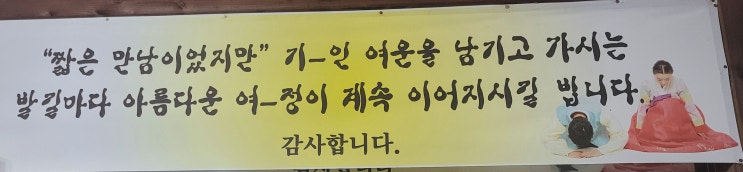 "짧은 만남이었지만" 기-인 여운을 남기고 가시는
발길마다 아름다운 여-정이 계속 이어지시길 빕니다.
감사합니다.